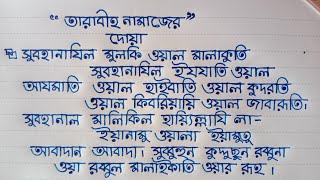 “তারাবীহ নামাজের”
দোয়া
সুবহানাযিল মুলকি ওয়াল মালাকুতি
সুবহানাযিল ইযযাতি ওয়াল
আযমাতি ওয়াল হাইবাতি ওয়াল কুদরাতি
ওয়াল কিবরিয়ায়ি ওয়াল জাবারুতি।
সুবহানাল মালিকিল হায়্যিল্লাযি লা-
ইয়ানামু ওয়ালা ইয়ামুতু
আবাদান আবাদা। সুব্বুহুন কুদ্দুছুন রব্বুনা
ওয়া রব্বুল মালাইকাতি ওয়ার রূহ।